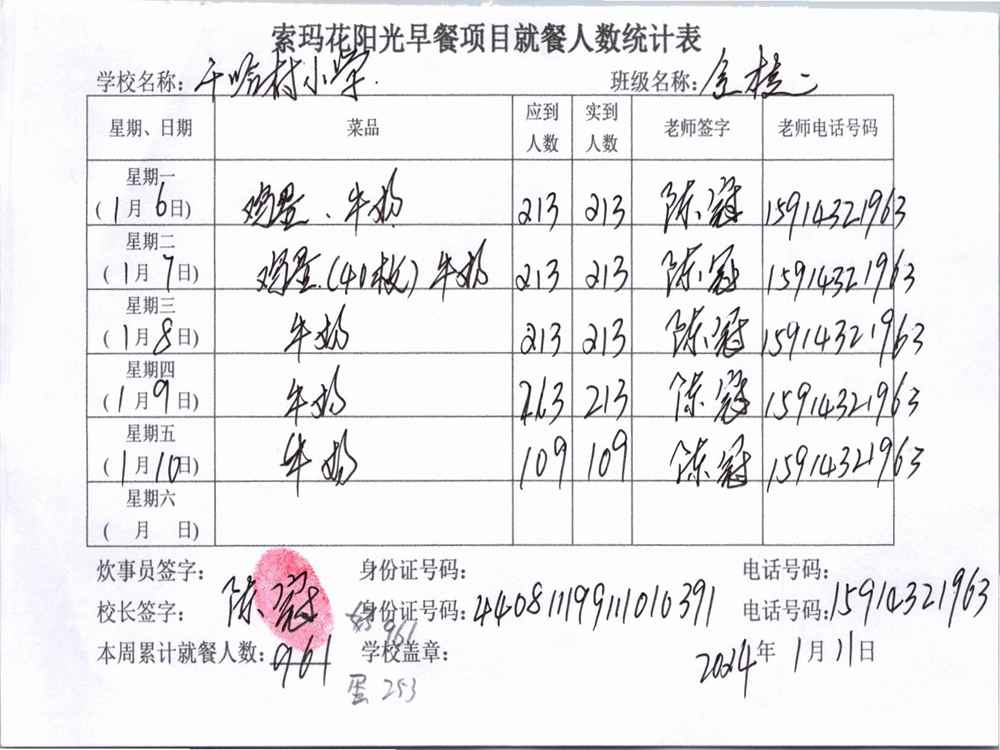 索玛花阳光早餐项目就餐人数统计表
学校名称：干哈村小学 班级名称：全校
星期、日期 菜品 应到人数 实到人数 老师签字 老师电话号码
星期一（1月6日） 鸡蛋、牛奶 213 213 陈冠 15914321963
星期二（1月7日） 鸡蛋（40枚）牛奶 213 213 陈冠 15914321963
星期三（1月8日） 牛奶 213 213 陈冠 15914321963
星期四（1月9日） 牛奶 213 213 陈冠 15914321963
星期五（1月10日） 牛奶 109 109 陈冠 15914321963
星期六（ 月 日）
炊事员签字： 身份证号码： 电话号码：
校长签字：陈冠 身份证号码：440811199111010391 电话号码：15914321963
奶961
本周累计就餐人数：961 学校盖章： 2024年1月11日
蛋 253